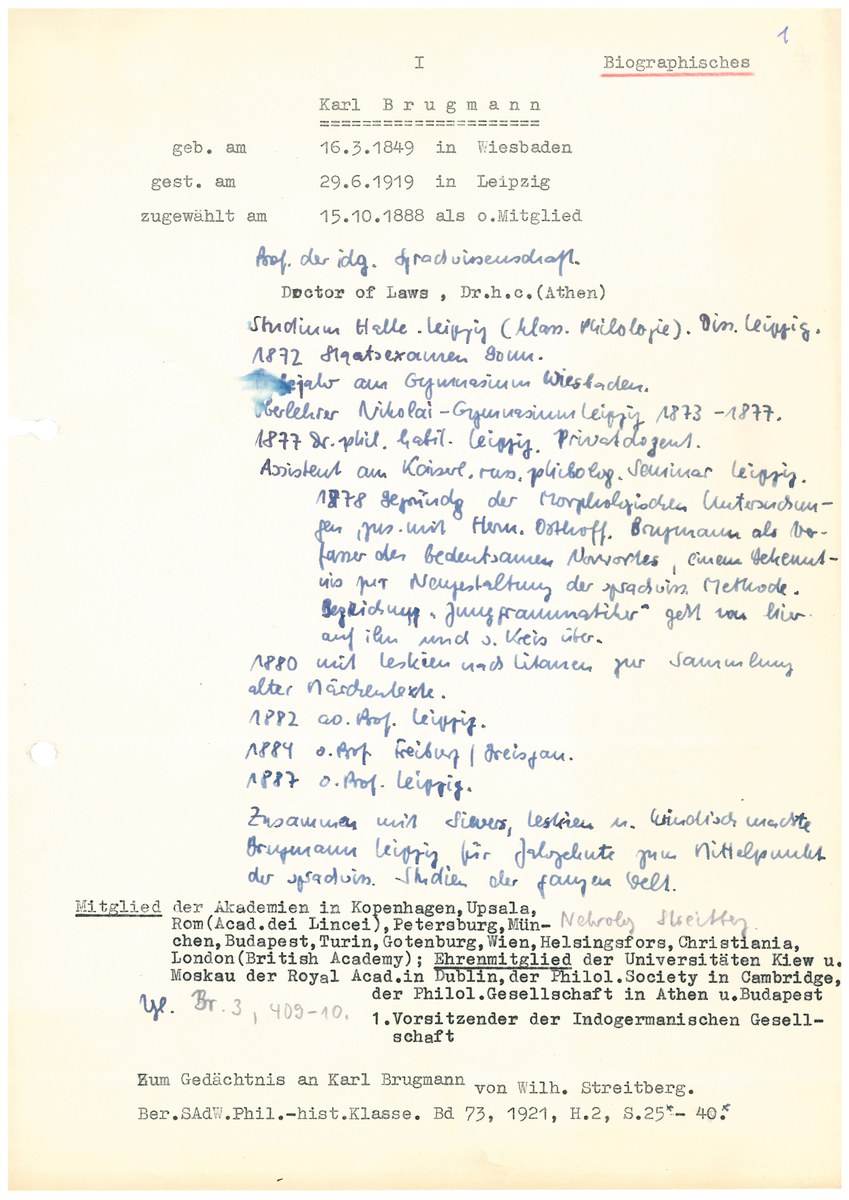 1
I Biographisches
Karl Brugmann
=====================
geb. am 16.3.1849 in Wiesbaden
gest. am 29.6.1919 in Leipzig
zugewählt am 15.10.1888 als o.Mitglied
Prof. der idg. Sprachwissenschaft.
Doctor of Laws , Dr.h.c.(Athen)
Studium Halle. Leipzig (klass. Philologie). Diss. Leipzig.
1872 Staatsexamen Bonn.
jahr am Gymnasium Wiesbaden.
Oberlehrer Nikolai-Gymnasium Leipzig 1873-1877.
1877 Dr. phil. habil. Leipzig. Privatdozent.
Assistent am Kaiserl. russ. philolog. Seminar Leipzig.
1878 Begründg der Morphologischen Untersuchun-
gen, zus. mit Herm. Osthoff. Brugmann als Ver-
fasser des bedeutsamen Vorwortes, einem Bekennt-
nis zur Neugestaltung der sprachwiss. Methode.
Bezeichnung "Junggrammatiker" geht von hier
auf ihn und s. Kreis über.
1880 mit Leskien nach Litauen zur Sammlung
alter Märchentexte.
1882 ao. Prof. Leipzig.
1884 o. Prof Freiburg / Breisgau.
1887 o. Prof. Leipzig.
Zusammen mit Sievers, Leskien u. Windisch machte
Brugmann Leipzig für Jahrzehnte zum Mittelpunkt
der sprachwiss. Studien der ganzen Welt.
Mitglied der Akademien in Kopenhagen,Upsala,
Rom(Acad.dei Lincei),Petersburg,Mün- Nekrolog Streitberg.
chen,Budapest,Turin,Gotenburg,Wien,Helsingsfors,Christiania,
London(British Academy); Ehrenmitglied der Universitäten Kiew u.
Moskau der Royal Acad.in Dublin,der Philol.Society in Cambridge,
der Philol.Gesellschaft in Athen u.Budapest
Vgl. Br. 3, 409-10.
1.Vorsitzender der Indogermanischen Gesell-
schaft
Zum Gedächtnis an Karl Brugmann von Wilh. Streitberg.
Ber.SAdW.Phil.-hist.Klasse. Bd 73, 1921, H.2, S.25*- 40*